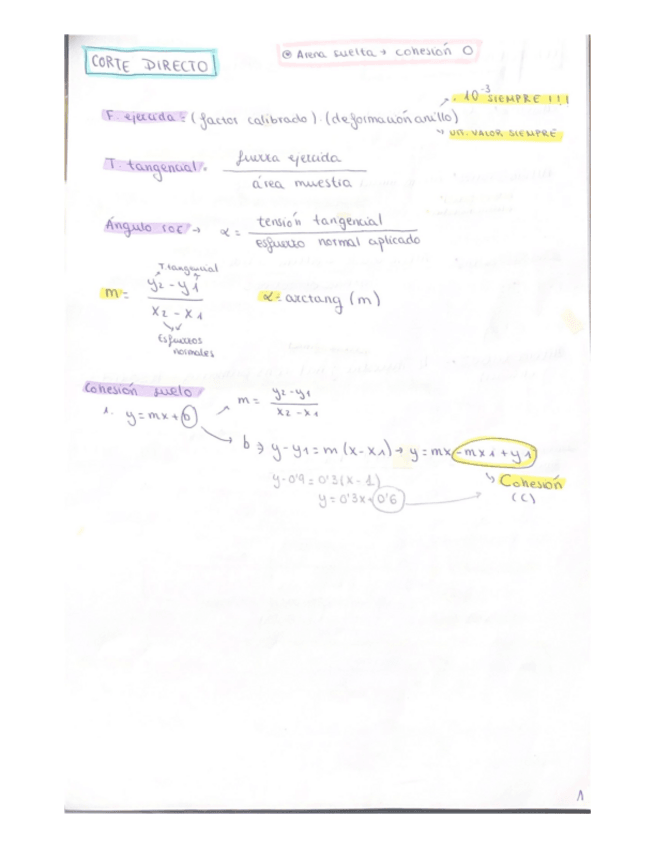 CORTE DIRECTO
⊛ Arena suelta → cohesión 0
. 10⁻³ SIEMPRE !!!
F. ejercida = (factor calibrado) . (deformación anillo)
↳ UN VALOR SIEMPRE
T. tangencial = fuerza ejercida
área muestra
Ángulo roc → α = tensión tangencial
esfuerzo normal aplicado
T. tangencial
m = y2 - y1
x2 - x1
Esfuerzos
normales
α = arctang (m)
Cohesión suelo
m = y2-y1
x2-x1
1. y = mx + b
b → y - y1 = m (x - x1) → y = mx - mx1 + y1
y - 0'9 = 0'3 (x - 1)
y = 0'3x + 0'6
↳ Cohesión
(c)
1